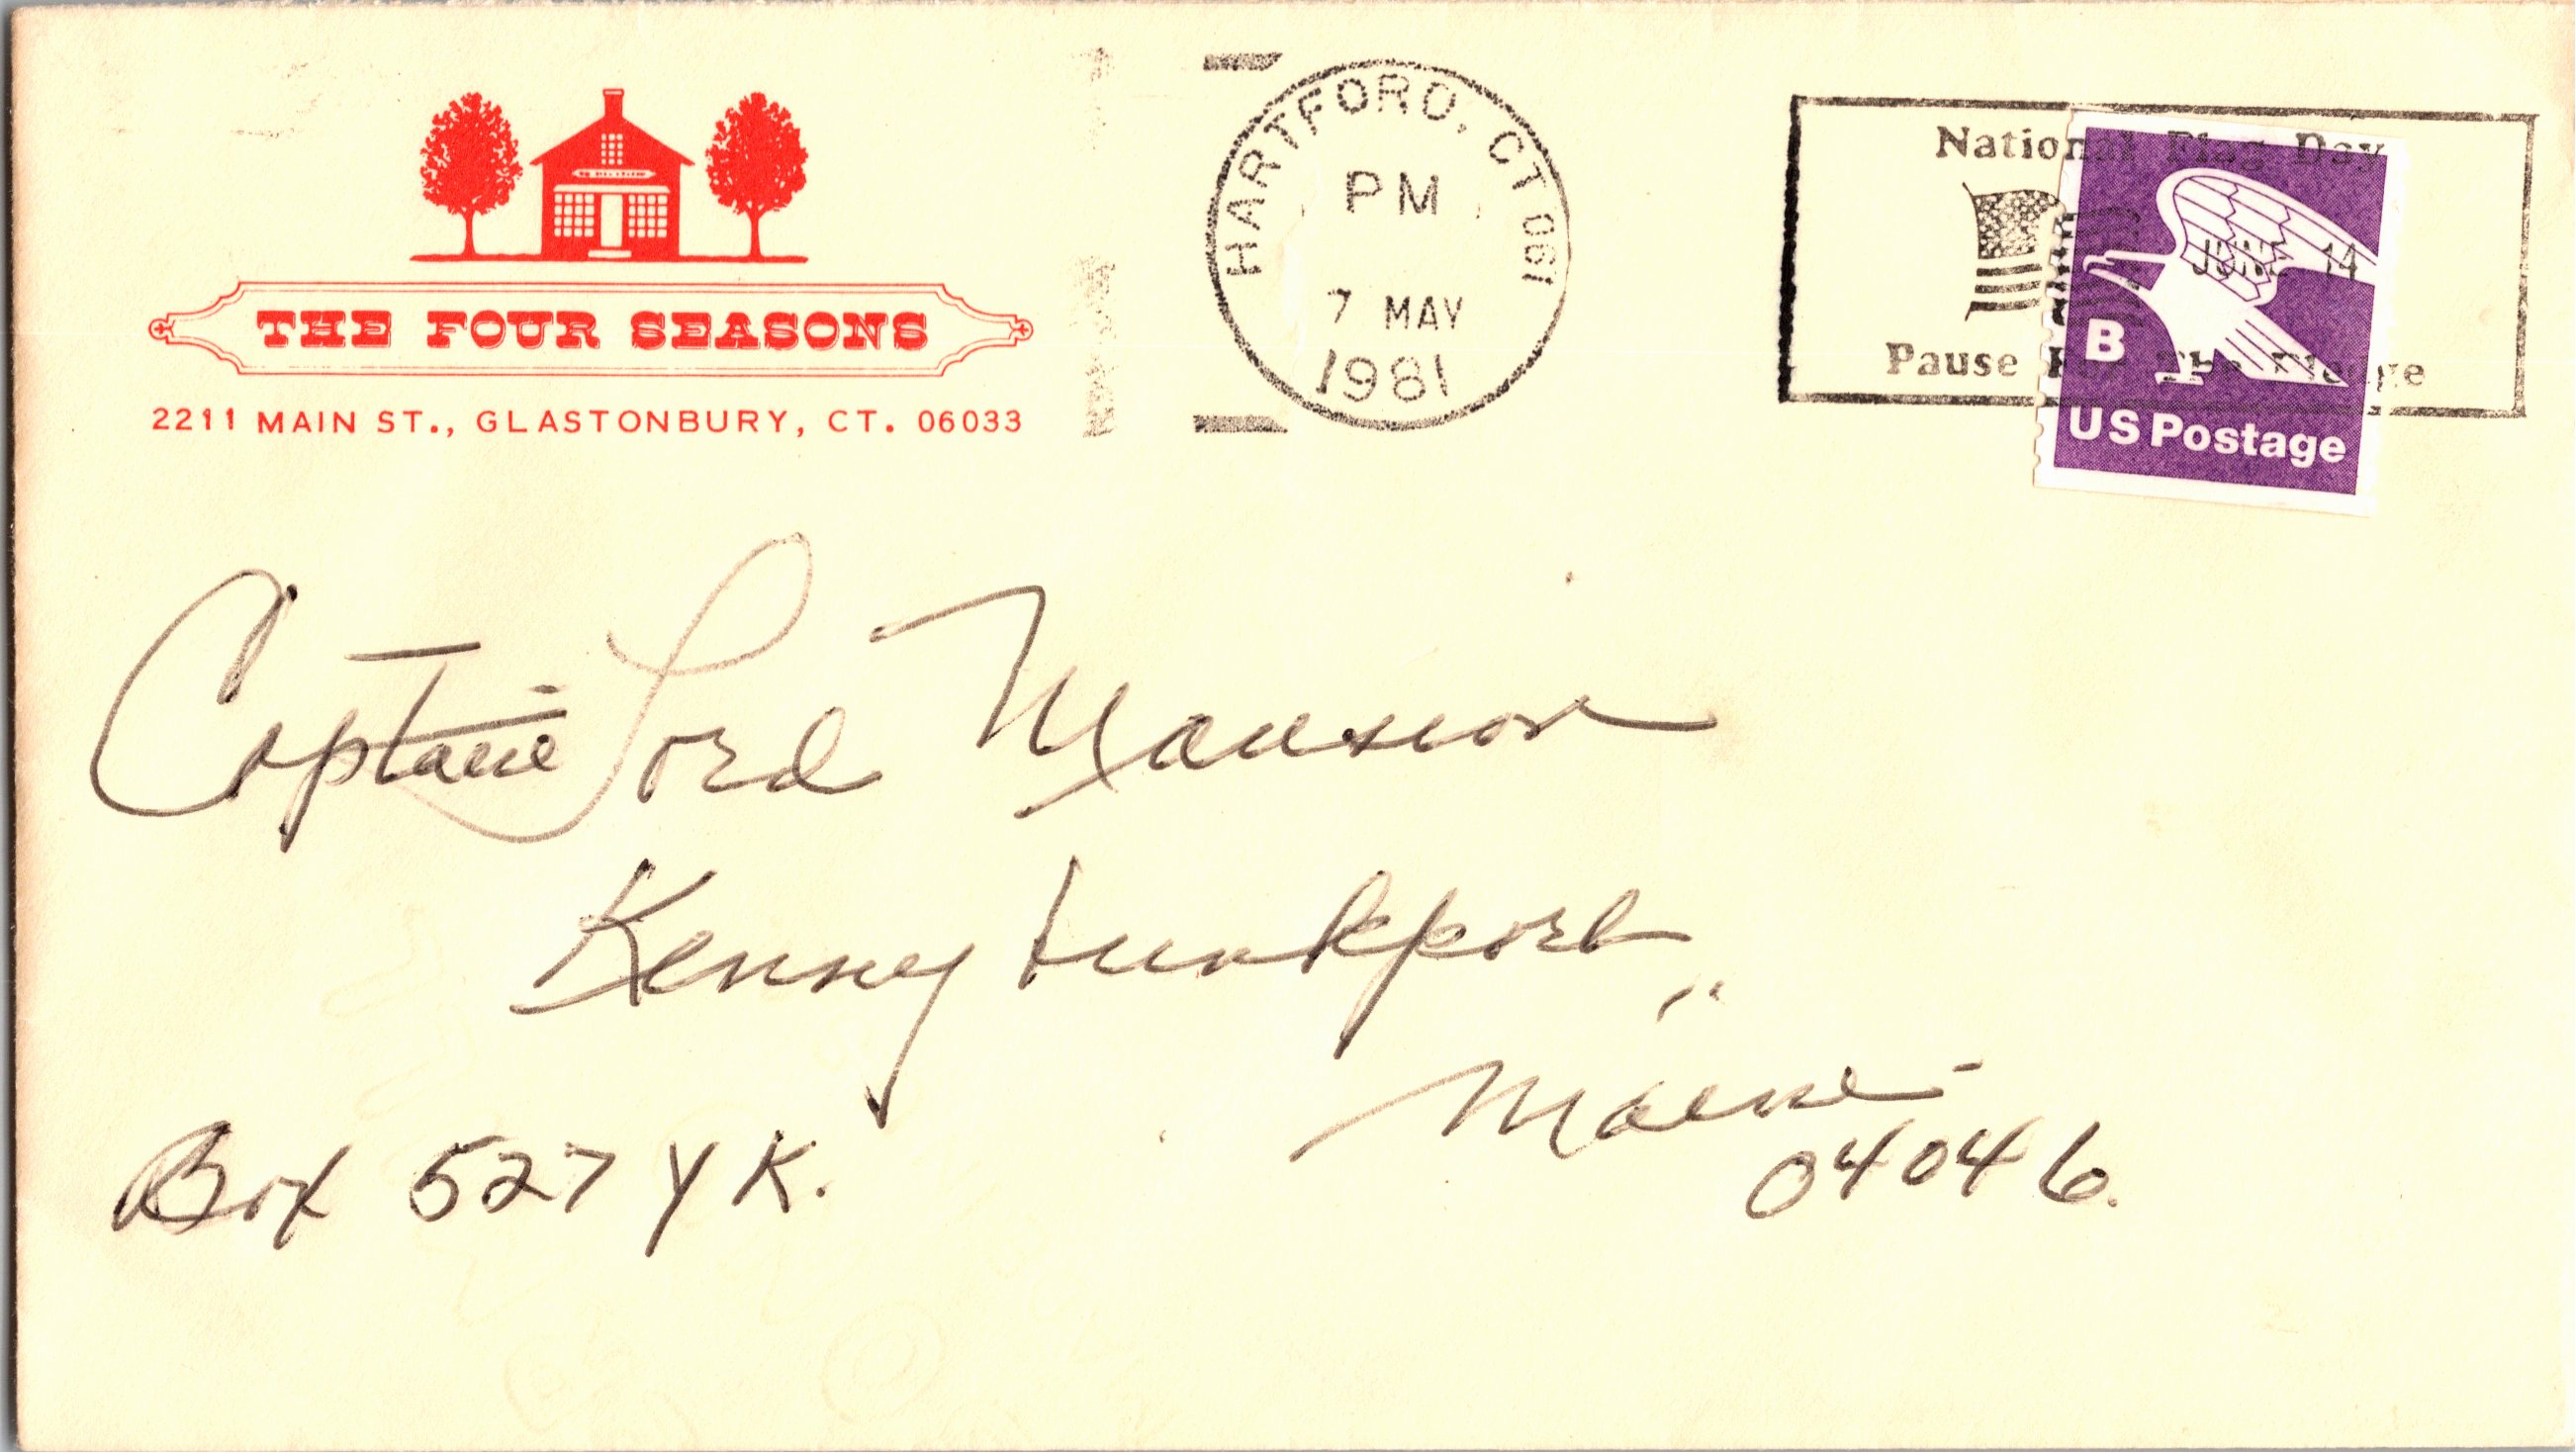 THE FOUR SEASONS
2211 MAIN ST., GLASTONBURY, CT. 06033
HARTFORD, CT 061
PM
7 MAY
1981
National Flag Day
JUNE 14
Pause For The Pledge
B
US Postage
Captain Lord Mansion
Kenny bunkport
Maine
04046.
Box 527 YK.